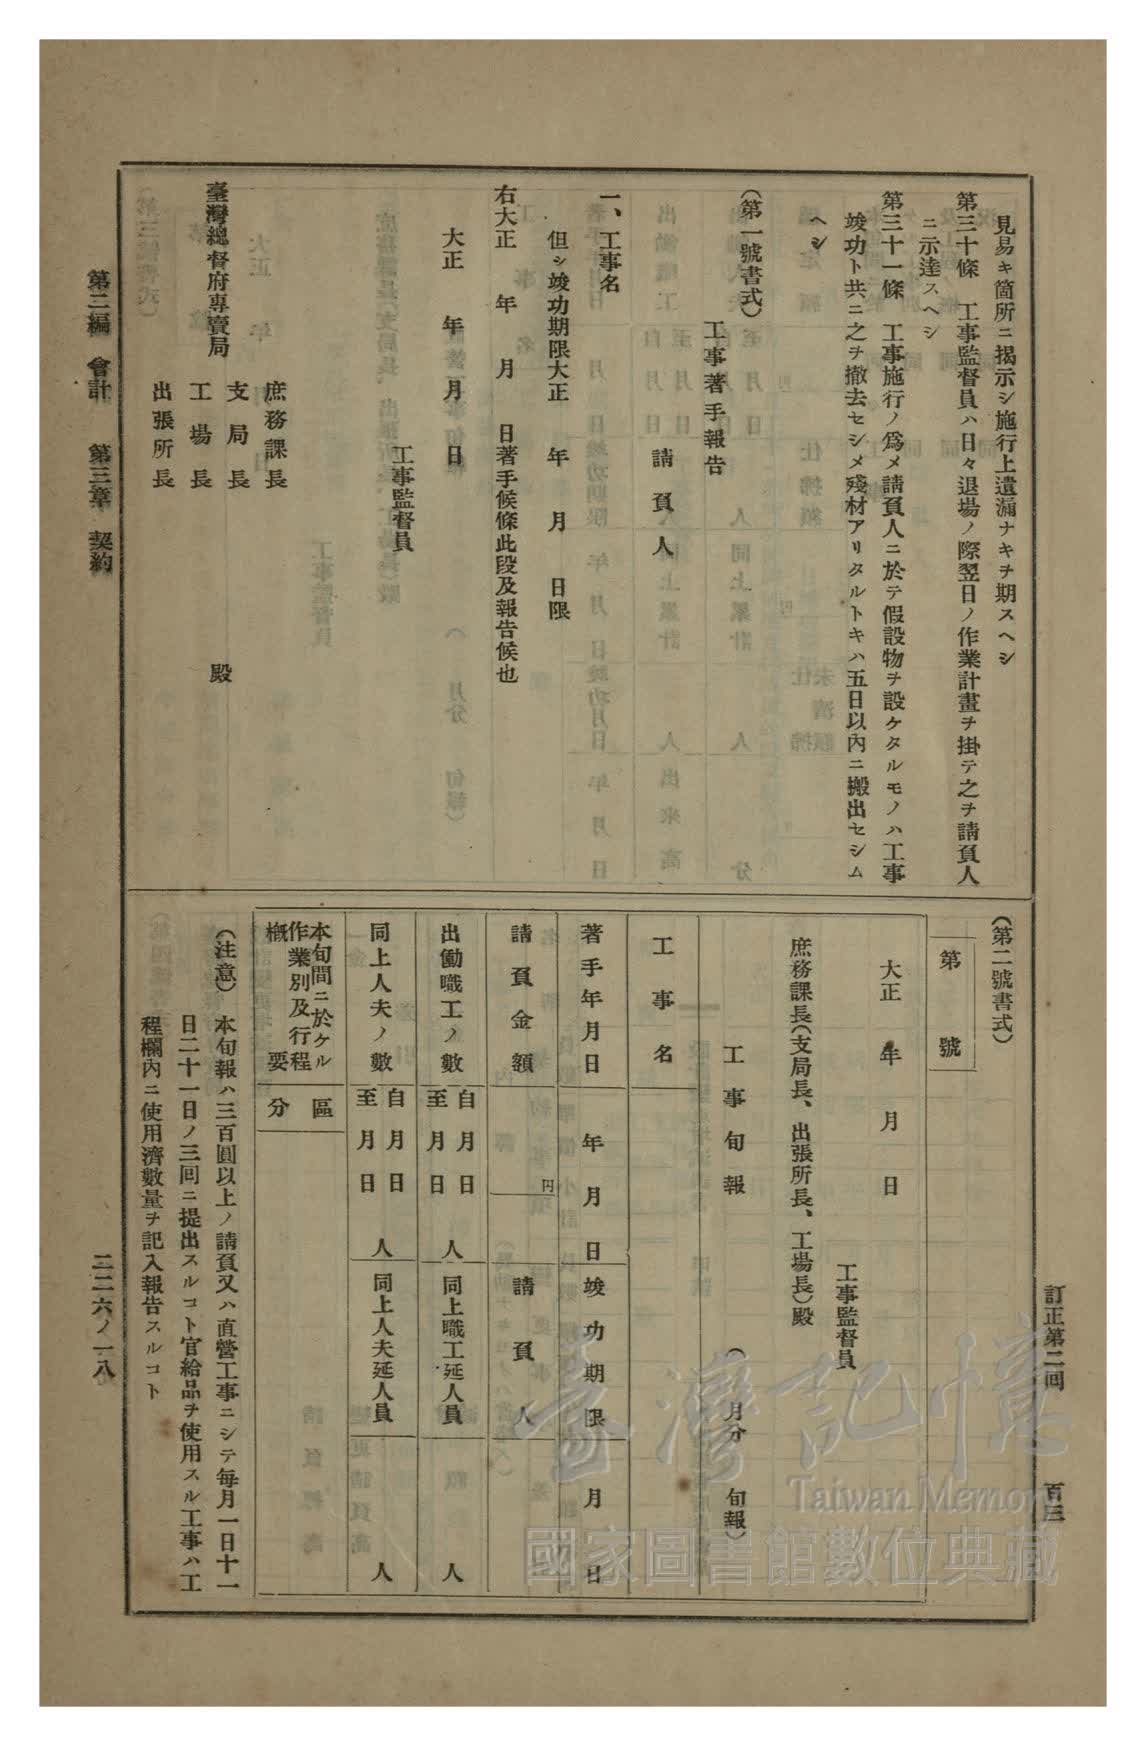 見易キ箇所ニ揭示シ施行上遺漏ナキヲ期スヘシ
第三十條　工事監督員ハ日々退場ノ際翌日ノ作業計畫ヲ掛テ之ヲ請負人
ニ示達スヘシ
第三十一條　工事施行ノ爲メ請負人ニ於テ假設物ヲ設ケタルモノハ工事
竣功ト共ニ之ヲ撤去セシメ殘材アリタルトキハ五日以內ニ搬出セシム
ヘシ
（第一號書式）
工事著手報告
請負人
一、工事名
但シ竣功期限大正　年　月　日限
右大正　年　月　日著手候條此段及報告候也
大正　年　月　日
工事監督員
庶務課長
支局長
工場長
出張所長
臺灣總督府專賣局
殿
（第二號書式）
第　號
大正　年　月　日
工事監督員
庶務課長（支局長、出張所長、工場長）殿
工事旬報　（　月分　旬報）
工事名
著手年月日　年　月　日　竣功期限　月　日
請負金額　円　請負人
出働職工ノ數　自　月　日　至　月　日　人　同上職工延人員　人
同上人夫ノ數　自　月　日　至　月　日　人　同上人夫延人員　人
本旬間ニ於ケル
作業別及行程
概要
區分
（注意）　本旬報ハ三百圓以上ノ請負又ハ直營工事ニシテ每月一日十一
日二十一日ノ三回ニ提出スルコト官給品ヲ使用スル工事ハ工
程欄內ニ使用濟數量ヲ記入報告スルコト
第二編　會計　第三章　契約
二二六ノ一八
訂正第二回　百三
臺灣記憶
Taiwan Memory
國家圖書館數位典藏